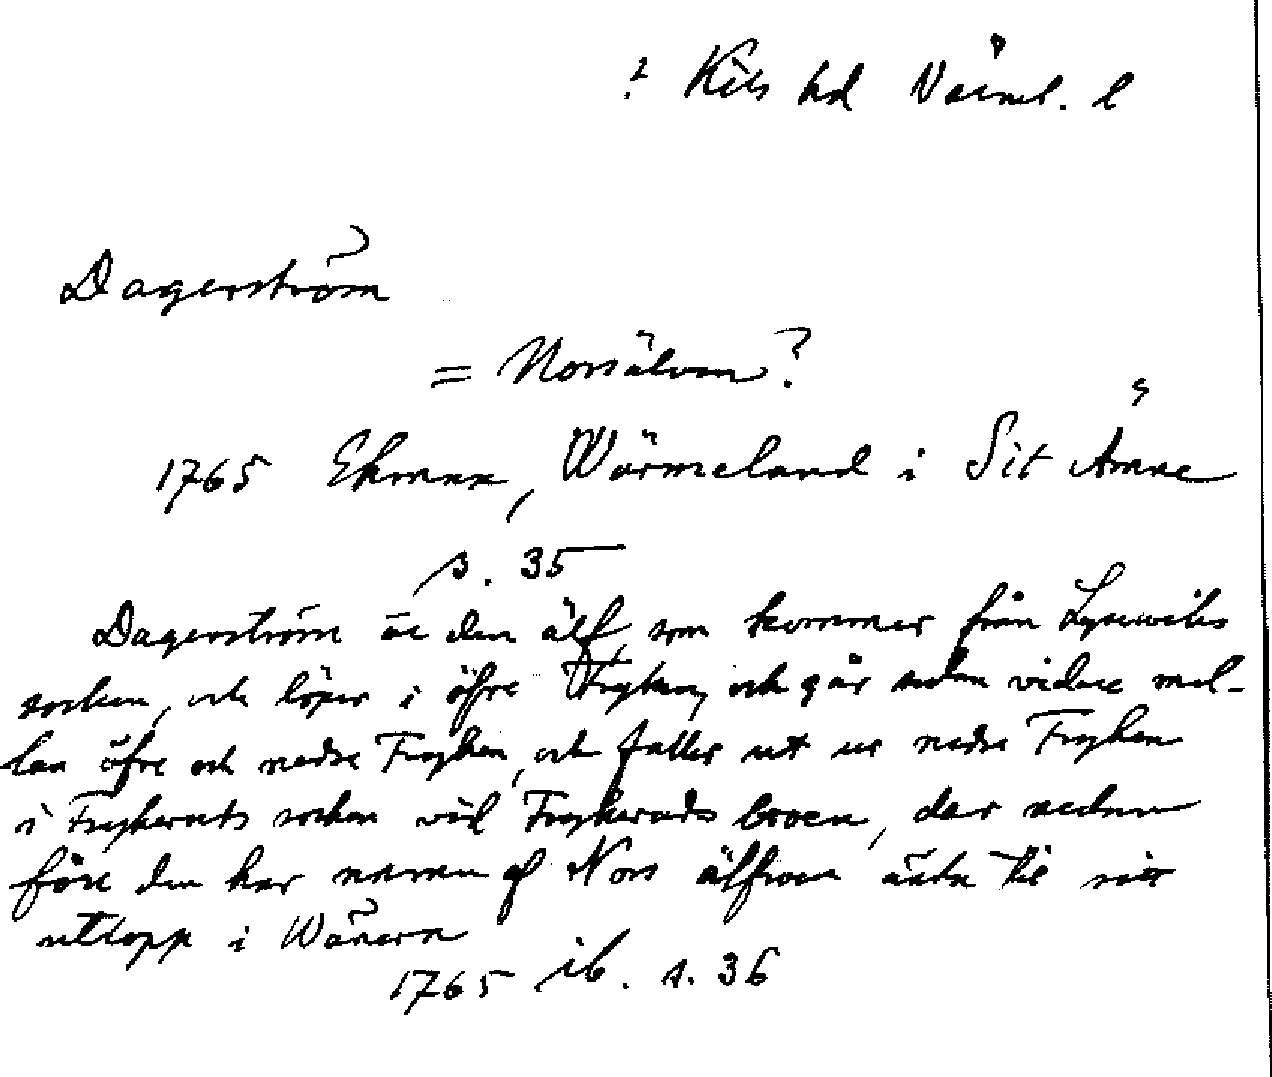 ? Kils hd Värml. l
Dagerström
= Norsälven?
1765 Ekman, Wärmeland i Sit Ämne
s. 35
Dagerström är den älf, som kommer från Lysewiks
socken, och löper i öfre Fryken, och går sedan vidare mel-
lan öfre och nedre Fryken, och faller ut ur nedre Fryken
i Frykeruds socken vid Frykeruds broen, der nedan
före den har namn af Nors älfwen ända til sitt
utlopp i Wänern
1765 ib. s. 36